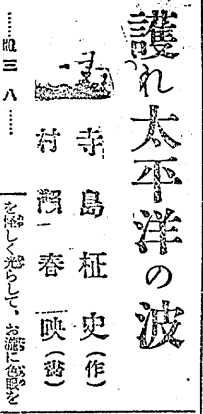 護れ太平洋の波
寺島柾史(作)
村瀬春映(画)
三八
を怪しく光らして、お瀧に色眼を